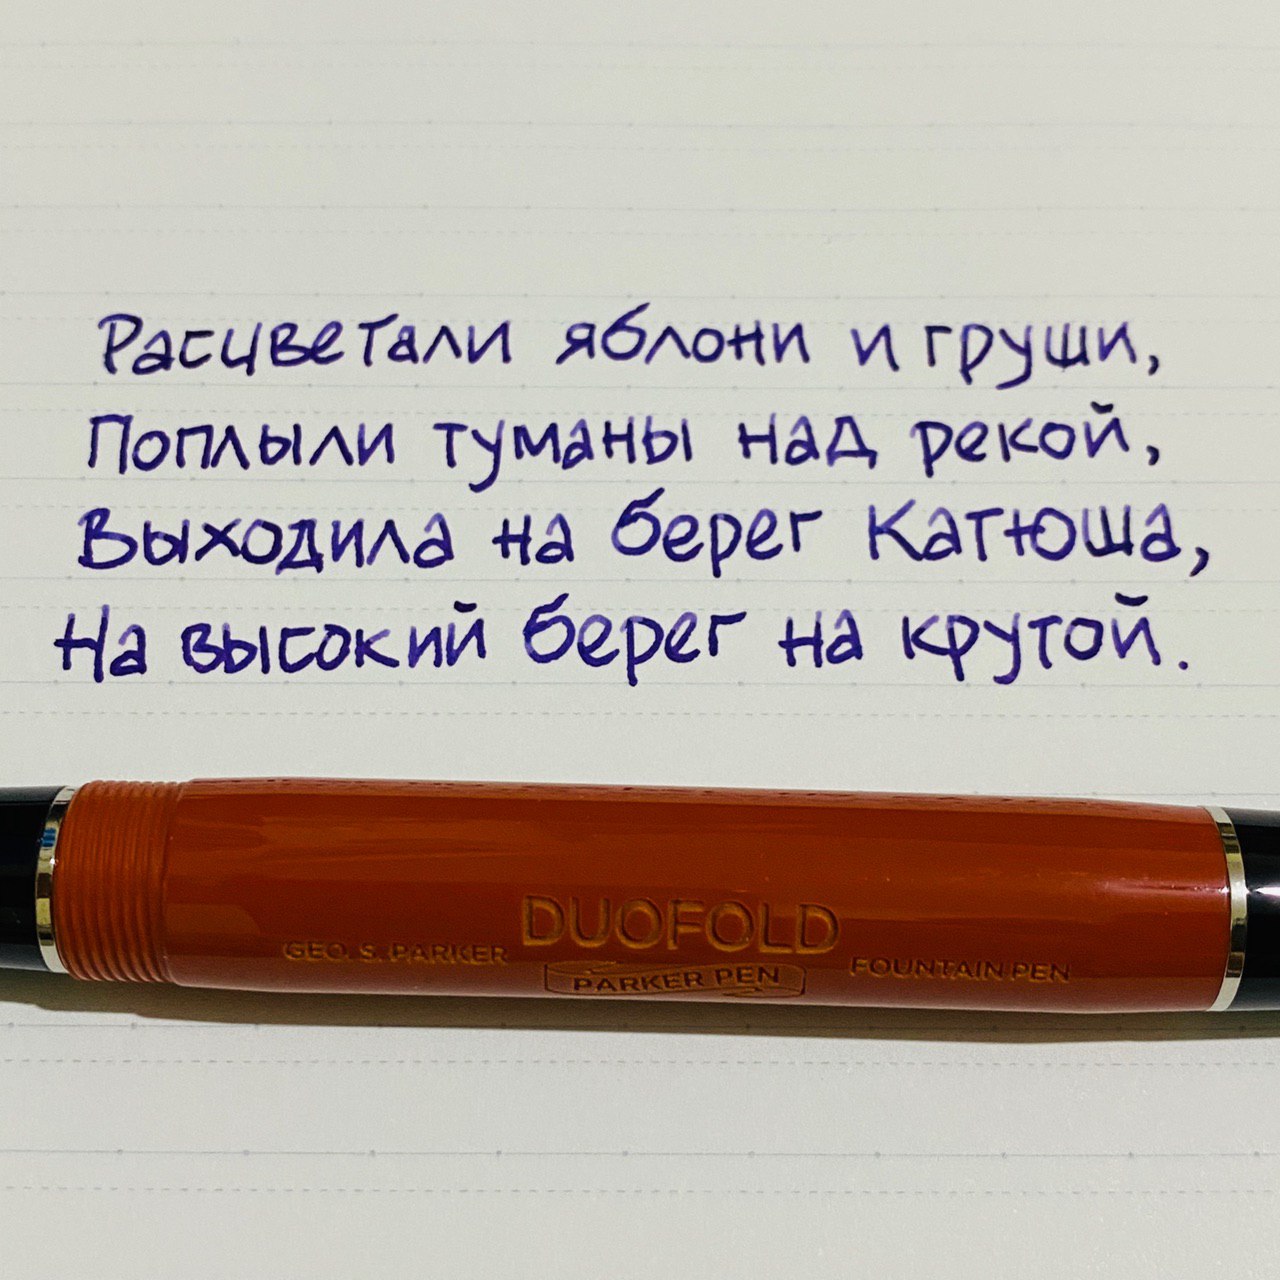 Расцветали яблони и груши,
Поплыли туманы над рекой,
Выходила на берег Катюша,
На высокий берег на крутой.
DUOFOLD
GEO. S. PARKER PARKER PEN FOUNTAIN PEN